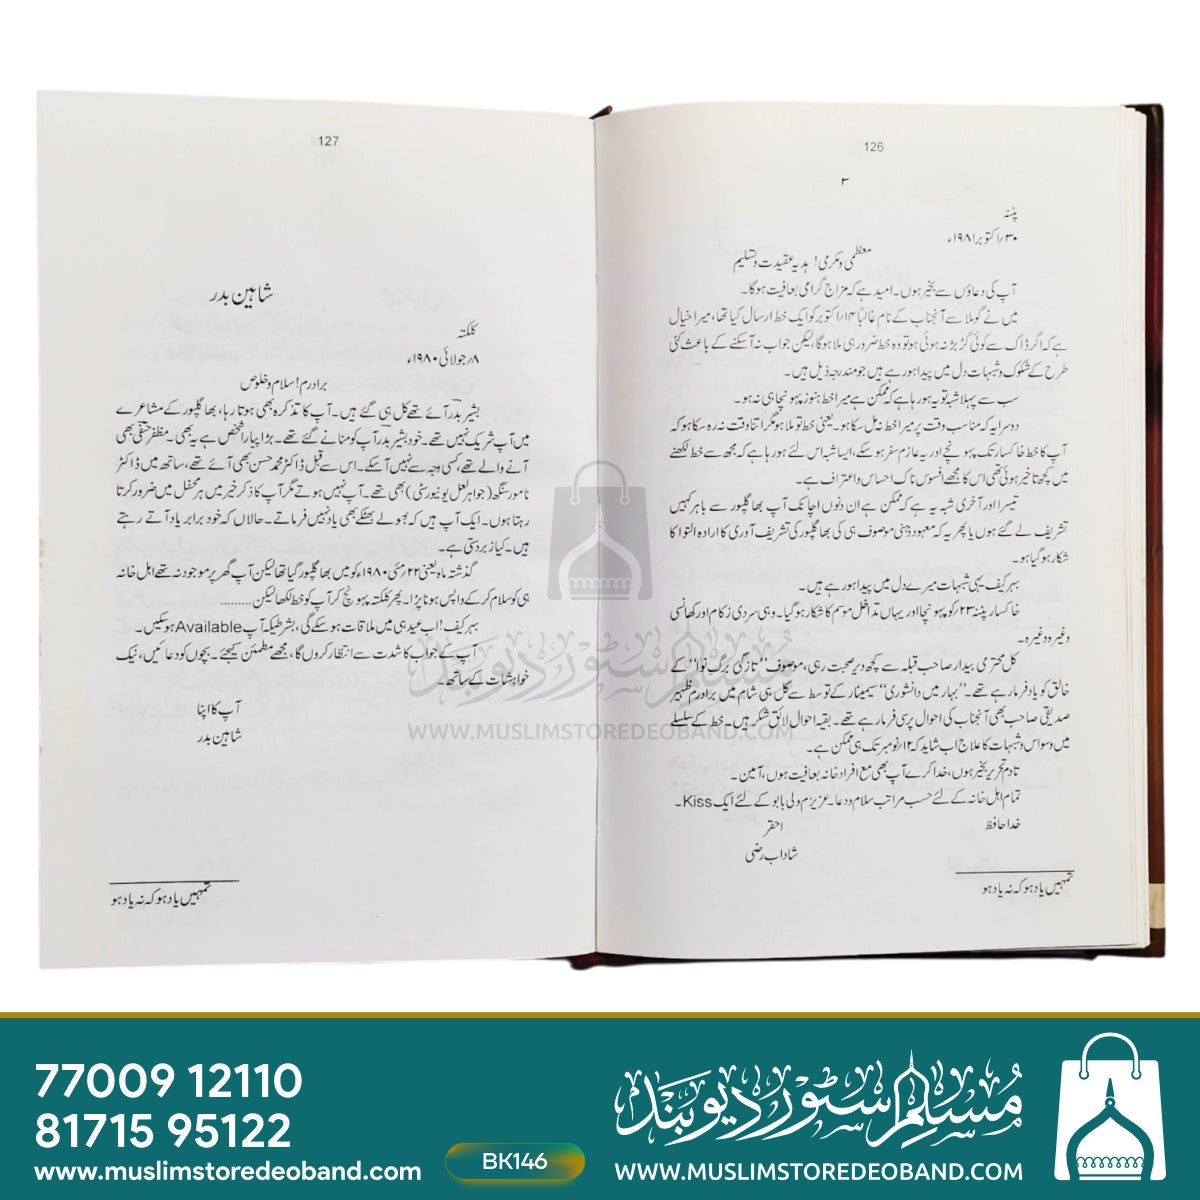 126
۳
پٹنہ
۳۰؍اکتوبر ۱۹۸۱ء
معظمی ومکرمی! ہدیہ عقیدت و تسلیم
آپ کی دعاؤں سے بخیر ہوں۔ امید ہے کہ مزاج گرامی بعافیت ہوگا۔
میں نے گوملا سے آنجناب کے نام غالباً ۱۴؍اکتوبر کو ایک خط ارسال کیا تھا، میرا خیال
ہے کہ اگر ڈاک سے کوئی گڑبڑ نہ ہوئی ہو تو وہ خط ضرور ہی ملا ہوگا، لیکن جواب نہ آسکنے کے باعث کئی
طرح کے شکوک و شبہات دل میں پیدا ہورہے ہیں جو مندرجہ ذیل ہیں۔
سب سے پہلا شبہ تو یہ ہورہا ہے کہ ممکن ہے میرا خط ہنوز پہونچا ہی نہ ہو۔
دوسرا یہ کہ مناسب وقت پر میرا خط نہ مل سکا ہو۔ یعنی خط تو ملا ہو مگر اتنا وقت نہ رہ سکا ہو کہ
آپ کا خط خاکسار تک پہونچے اور یہ عازم سفر ہوسکے، ایسا شبہ اس لئے ہورہا ہے کہ مجھ سے خط لکھنے
میں کچھ تاخیر ہوئی تھی اس کا مجھے افسوس ناک احساس و اعتراف ہے۔
تیسرا اور آخری شبہ یہ ہے کہ ممکن ہے ان دنوں اچانک آپ بھاگلپور سے باہر کہیں
تشریف لے گئے ہوں یا پھر یہ کہ معہود ذہنی موصوف ہی کی بھاگلپور کی تشریف آوری کا ارادہ التوا کا
شکار ہوگیا ہو۔
بہرکیف یہی شبہات میرے دل میں پیدا ہورہے ہیں۔
خاکسار پٹنہ ۲۳؍کو پہونچا اور یہاں تداخل موسم کا شکار ہوگیا۔ وہی سردی زکام اور کھانسی
وغیرہ وغیرہ۔
کل محترمی بیدار صاحب قبلہ سے کچھ دیر صحبت رہی، موصوف ’’تازگی برگ نوا‘‘ کے
خالق کو یاد فرمارہے تھے۔ ’’بہار میں دانشوری‘‘ سیمینار کے توسط سے کل ہی شام میں برادرم ظہیر
صدیقی صاحب بھی آنجناب کی احوال پرسی فرمارہے تھے۔ بقیہ احوال لائق شکر ہیں۔ خط کے سلسلے
میں وسواس و شبہات کا علاج اب شاید کہ ۱۲؍نومبر تک ہی ممکن ہے۔
تادم تحریر بخیر ہوں، خدا کرے آپ بھی مع افراد خانہ بعافیت ہوں، آمین۔
تمام اہل خانہ کے لئے حسب مراتب سلام و دعا۔ عزیزم ولی بابو کے لئے ایک Kiss۔
خدا حافظ
احقر
شاداب رضی
تمہیں یاد ہو کہ نہ یاد ہو
127
شاہین بدر
کلکتہ
۸؍جولائی ۱۹۸۰ء
برادرم! سلام و خلوص
بشیر بدر آئے تھے کل ہی گئے ہیں۔ آپ کا تذکرہ بھی ہوتا رہا، بھاگلپور کے مشاعرے
میں آپ شریک نہیں تھے۔ خود بشیر بدر آپ کو منانے گئے تھے۔ بڑا پیارا شخص ہے یہ بھی۔ مظفر حنفی بھی
آنے والے تھے، کسی وجہ سے نہیں آسکے۔ اس سے قبل ڈاکٹر محمد حسن بھی آئے تھے، ساتھ میں ڈاکٹر
نامور سنگھ (جواہر لعل یونیورسٹی) بھی تھے۔ آپ نہیں ہوتے مگر آپ کا ذکر خیر میں ہر محفل میں ضرور کرتا
رہتا ہوں۔ ایک آپ ہیں کہ بھولے بھٹکے بھی یاد نہیں فرماتے۔ حالاں کہ خود برابر یاد آتے رہتے
ہیں۔ کیا زبردستی ہے۔
گذشتہ ماہ یعنی ۲۲؍مئی ۱۹۸۰ء کو میں بھاگلپور گیا تھا لیکن آپ گھر پر موجود نہ تھے اہل خانہ
ہی کو سلام کرکے واپس ہونا پڑا۔ پھر کلکتہ پہونچ کر آپ کو خط لکھا لیکن.........
بہرکیف! اب عید ہی میں ملاقات ہوسکے گی، بشرطیکہ آپ Available ہوسکیں۔
آپ کے جواب کا شدت سے انتظار کروں گا، مجھے مطمئن کیجئے۔ بچوں کو دعائیں، نیک
خواہشات کے ساتھ۔
آپ کا اپنا
شاہین بدر
تمہیں یاد ہو کہ نہ یاد ہو
مسلم سٹور دیوبند
WWW.MUSLIMSTOREDEOBAND.COM
77009 12110
81715 95122
www.muslimstoredeoband.com
BK146
مسلم سٹور دیوبند
WWW.MUSLIMSTOREDEOBAND.COM